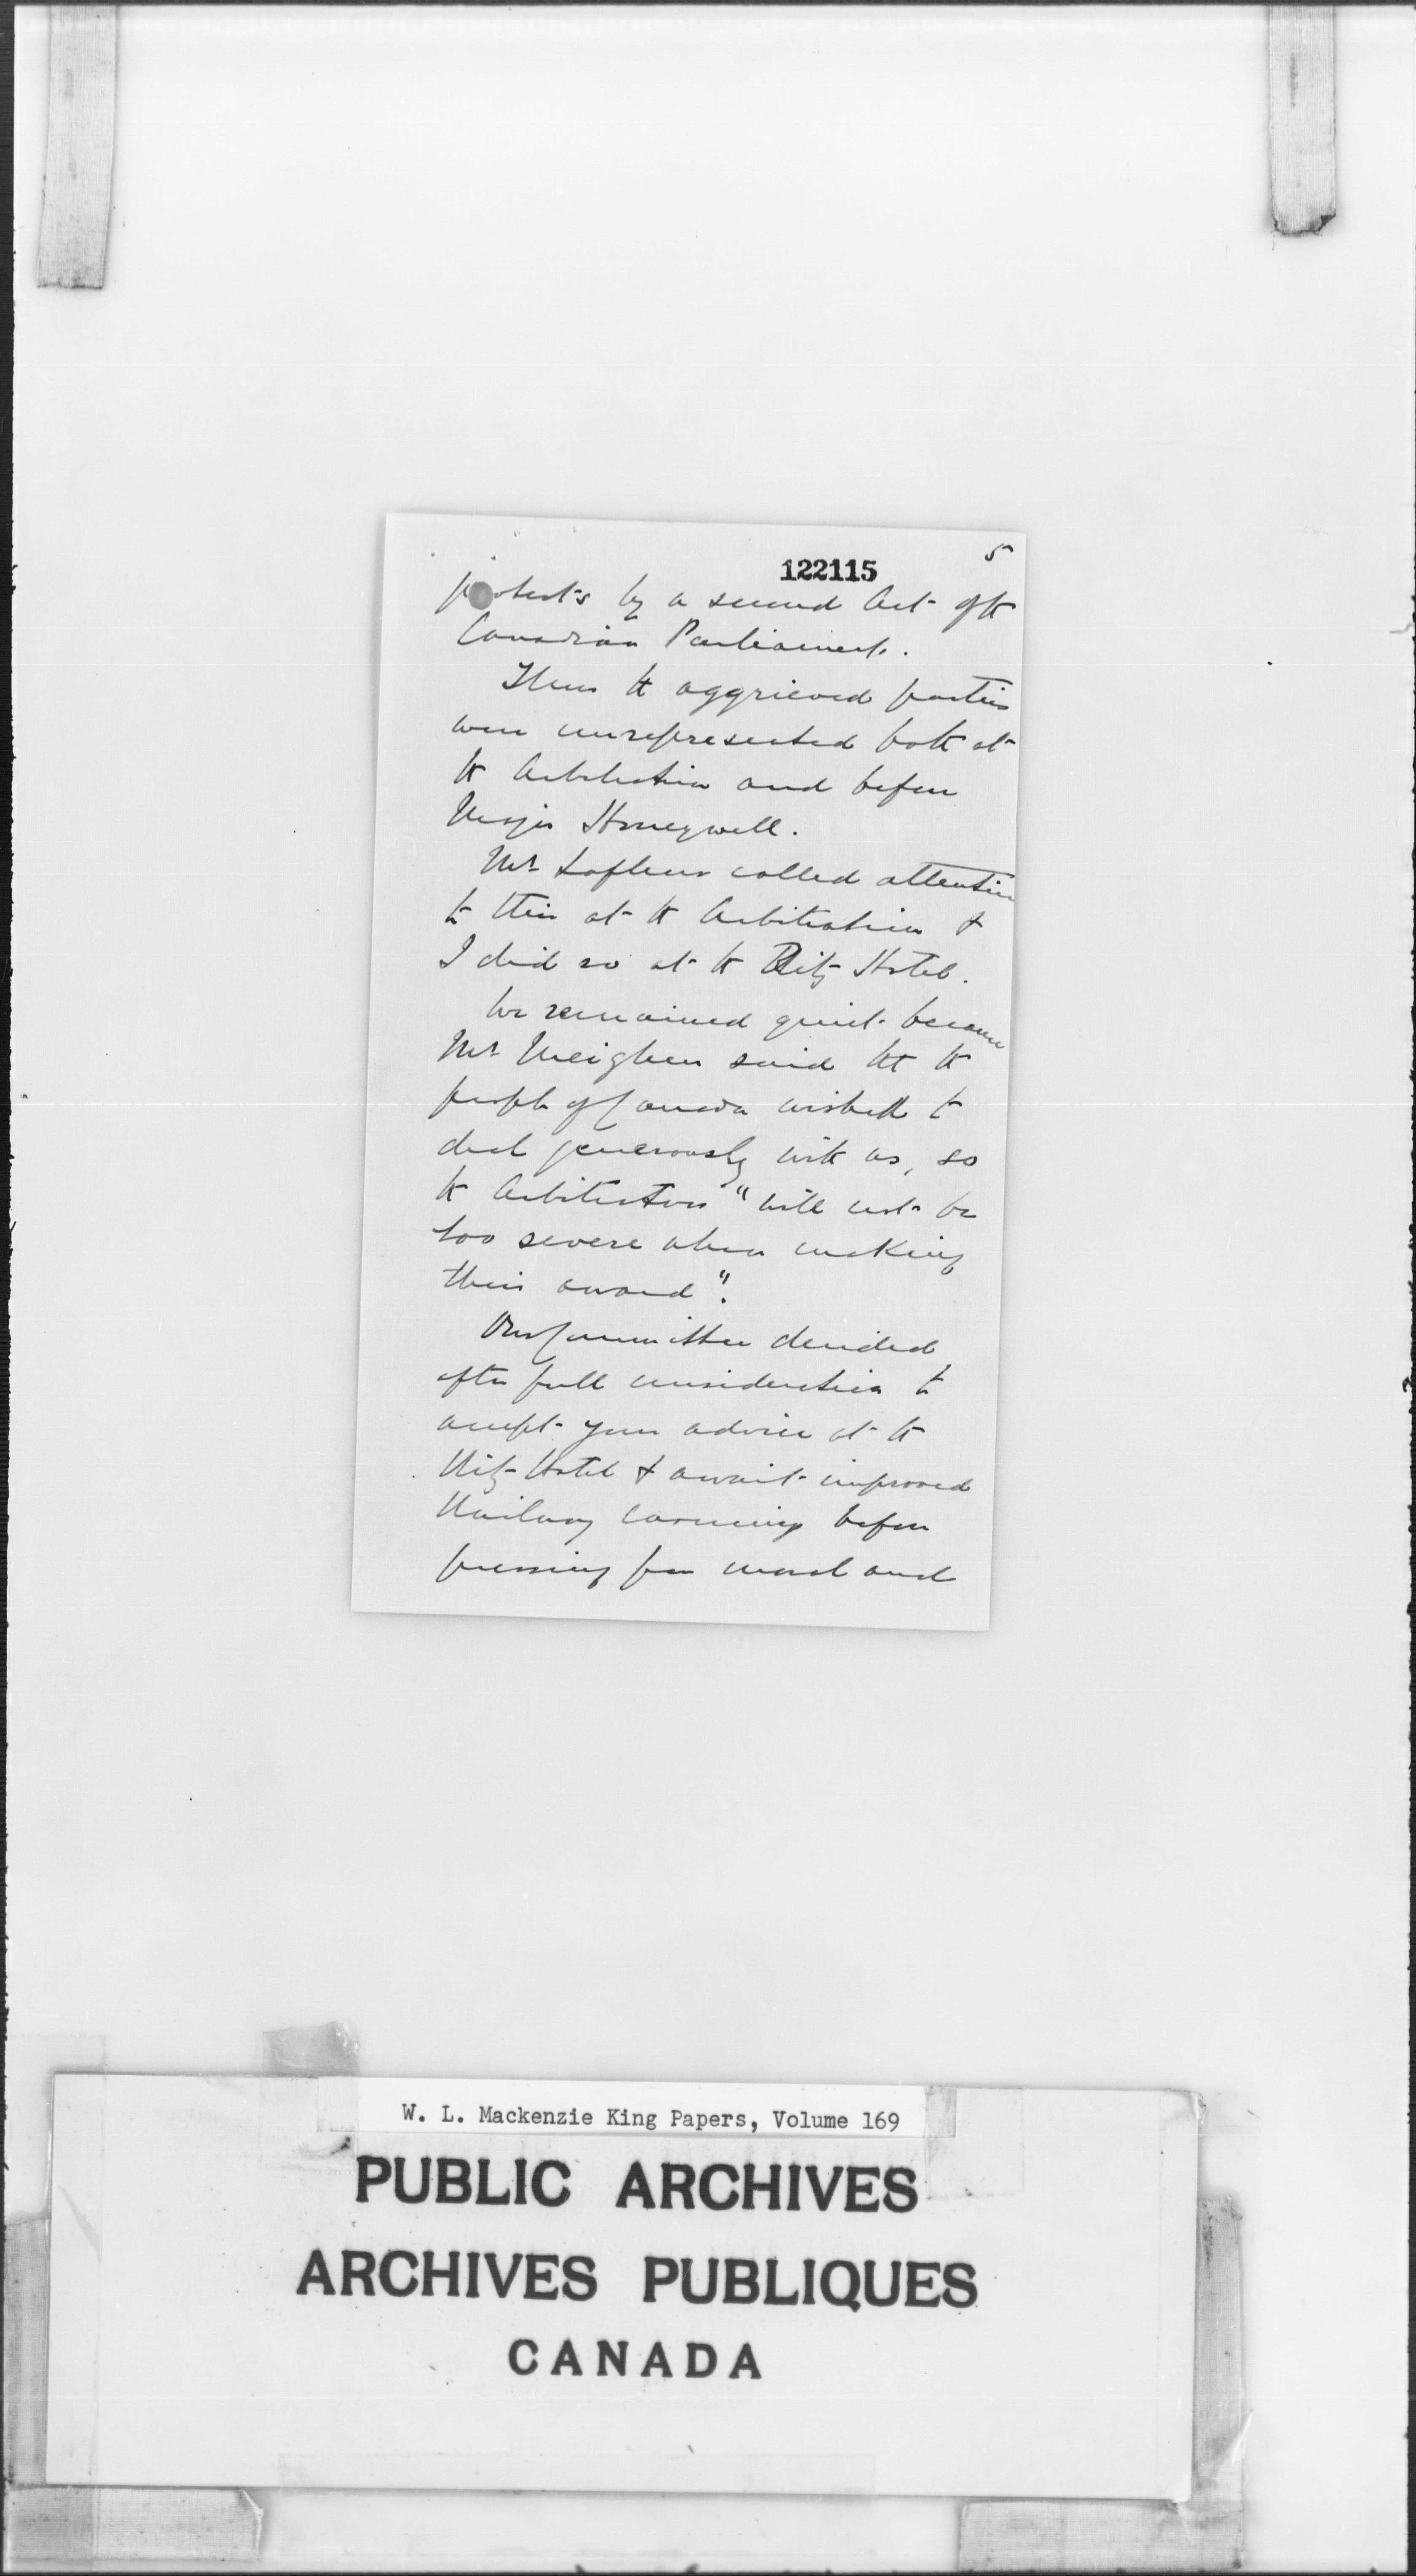 5
122115
protests by a second Act of the
Canadian Parliament.
Thus the aggrieved parties
were unrepresented both at
the Arbitration and before
Major Honeywell.
Mr Lafleur called attention
to this at the Arbitration &
I did so at the Ritz Hotel.
We remained quiet because
Mr Meighen said tht the
people of Canada wished to
deal generously with us, so
the Arbitrators "will not be
too severe when making
their award".
Our Committee decided
after full consideration to
accept your advice at the
Ritz Hotel & await improved
Railway earnings before
pressing for moral and
W. L. Mackenzie King Papers, Volume 169
PUBLIC ARCHIVES
ARCHIVES PUBLIQUES
CANADA